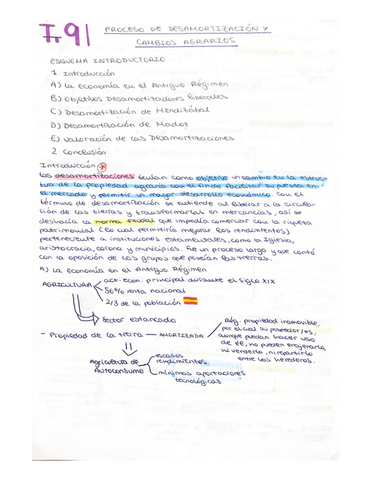 T.9| PROCESO DE DESAMORTIZACIÓN Y
CAMBIOS AGRARIOS
ESQUEMA INTRODUCTORIO
1. Introducción
A) La Economía en el Antiguo Régimen
B) Objetivos Desamortizadores liberales
C) Desamortización de Mendizábal
D) Desamortización de Madoz
E) Valoración de las Desamortizaciones
2 Conclusión
Introducción
Las desamortizaciones tenían como objetivo un cambio en la estruc-
tura de la propiedad agraria con el fin de facilitar su puesta en
el mercado y permitir un mayor desarrollo económico. Con el
término de desamortización se entiende al liberar a la circula-
ción de las tierras y transformarlas en mercancías, así se
deshacía la norma feudal que impedía comerciar con la riqueza
patrimonial (lo cual permitiría mejorar los rendimientos)
perteneciente a instituciones estamentales, como la Iglesia,
aristocracia, corona y municipios. Fue un proceso largo y que contó
con la oposición de los grupos que poseían las tierras.
A) La economía en el Antiguo Régimen
AGRICULTURA
act. econ. principal durante el siglo XIX
56% renta nacional
2/3 de la población
Sector estancado
- Propiedad de la tierra — AMORTIZADA
Rég. propiedad inamovible,
por el cual su poseedor/es,
aunque puedan hacer uso
de él, no pueden enajenarla,
ni venderla, ni repartirlo
entre los herederos.
Agricultura de
Autoconsumo
escasos
rendimientos
mínimas aportaciones
tecnológicas